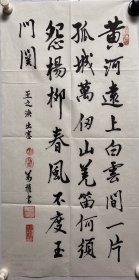 黄河遠上白雲間一片
孤城萬仞山羌笛何須
怨楊柳春風不度玉
門関
王之渙出塞